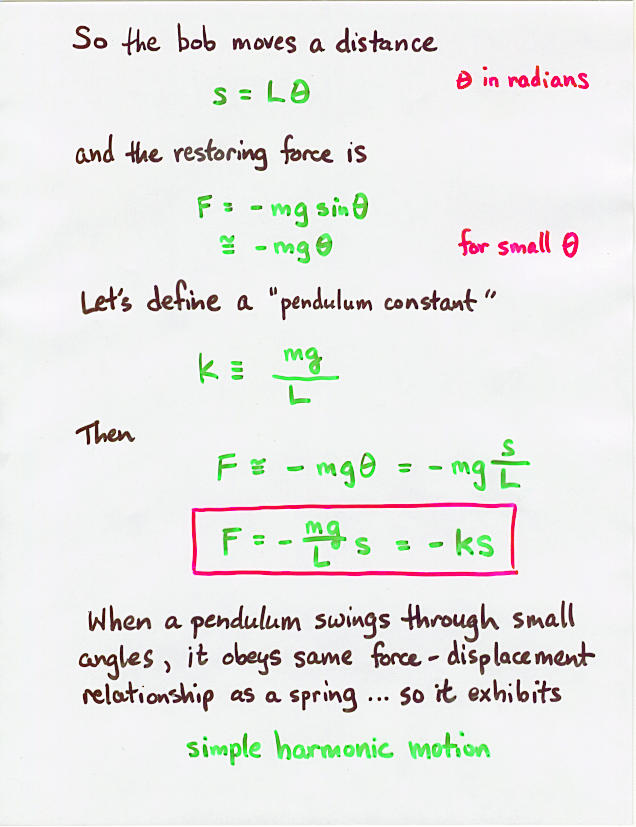 So the bob moves a distance
s = Lθ
θ in radians
and the restoring force is
F = -mg sinθ
≅ -mgθ
for small θ
Let's define a "pendulum constant"
k ≡ mg/L
Then
F ≅ - mgθ = - mg s/L
F = - mg/L s = - ks
When a pendulum swings through small
angles, it obeys same force-displacement
relationship as a spring ... so it exhibits
simple harmonic motion